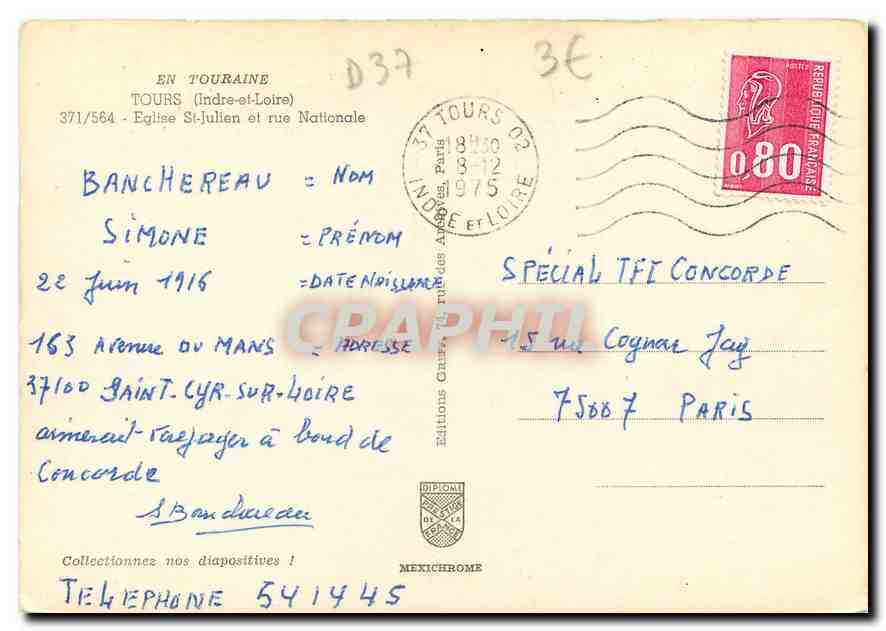 EN TOURAINE
TOURS (Indre-et-Loire)
371/564 - Eglise St-Julien et rue Nationale
D37
3€
37 TOURS 02
18H30
8-12
1975
INDRE ET LOIRE
POSTES
REPUBLIQUE FRANÇAISE
0,80
BANCHEREAU = NOM
SIMONE = PRÉNOM
22 Juin 1916 = DATE NAISSANCE
163 Avenue DU MANS = ADRESSE
37100 SAINT-CYR-SUR-LOIRE
aimerait voyager à bord de
Concorde
S Banchereau
Editions Greff, 74, rue des Archives, Paris
CPAPHIL
SPÉCIAL TF1 CONCORDE
15 rue Cognac Jay
75007 PARIS
DIPLOME
PRESTIGE
DE LA
FRANCE
MEXICHROME
Collectionnez nos diapositives !
TELEPHONE 541445